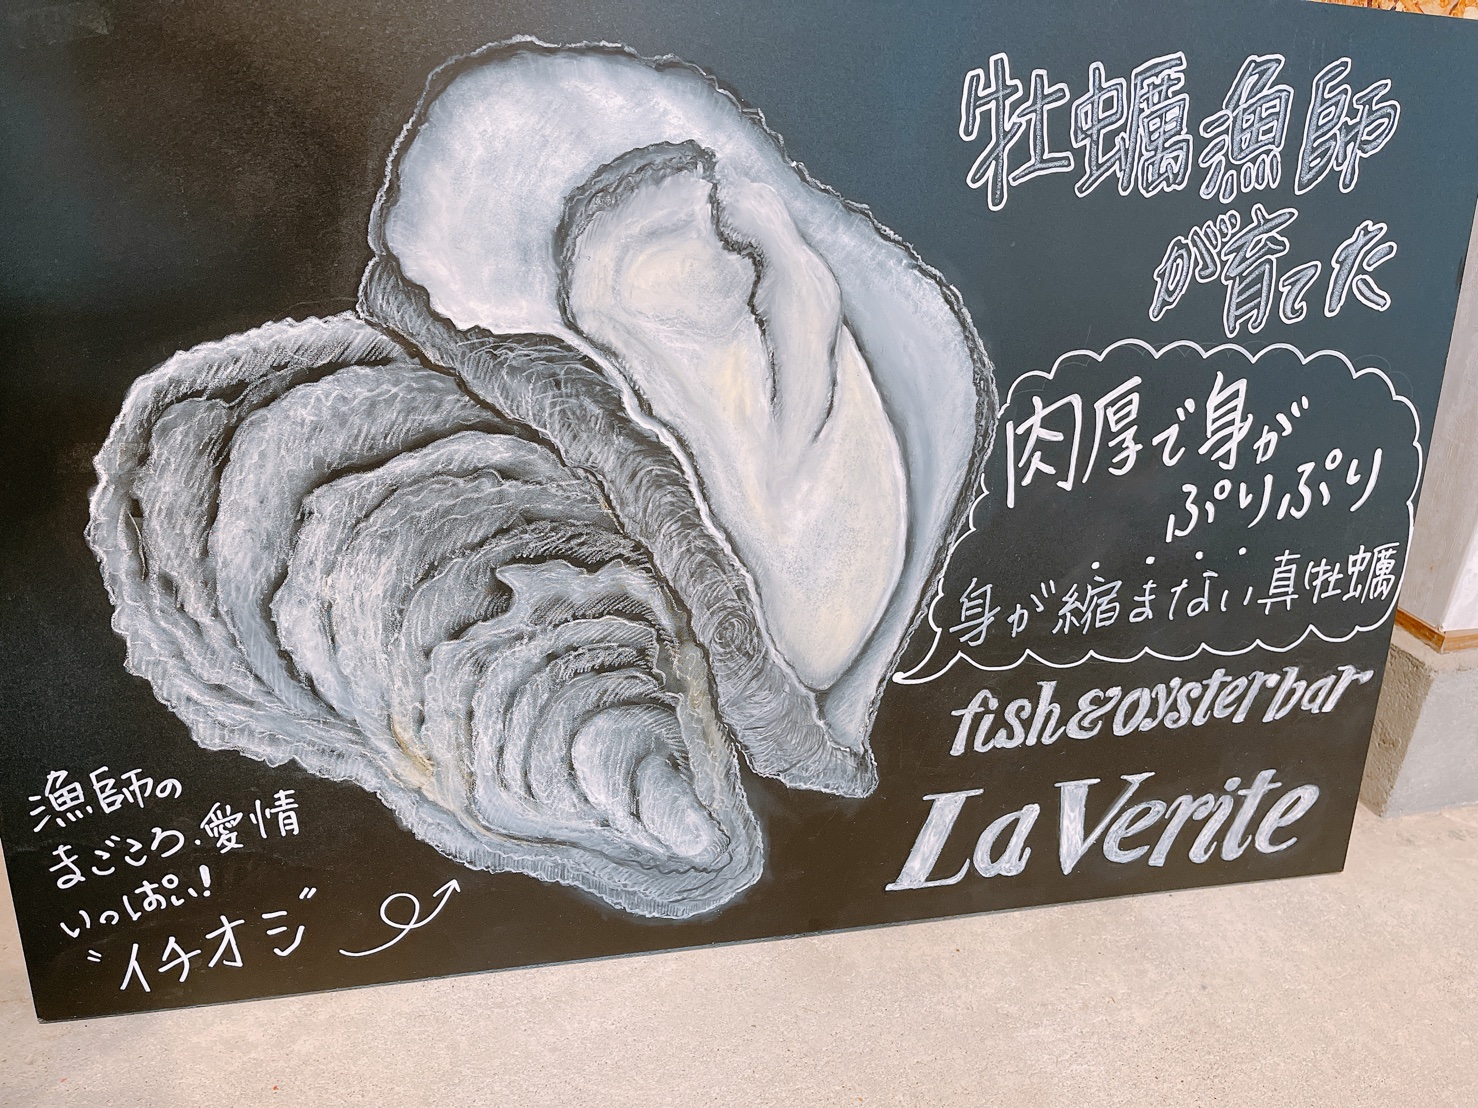 牡蠣漁師
が育てた
肉厚で身が
ぷりぷり
身が縮まない真牡蠣
fish&oysterbar
La Verite
漁師の
まごころ.愛情
いっぱい!
"イチオシ"